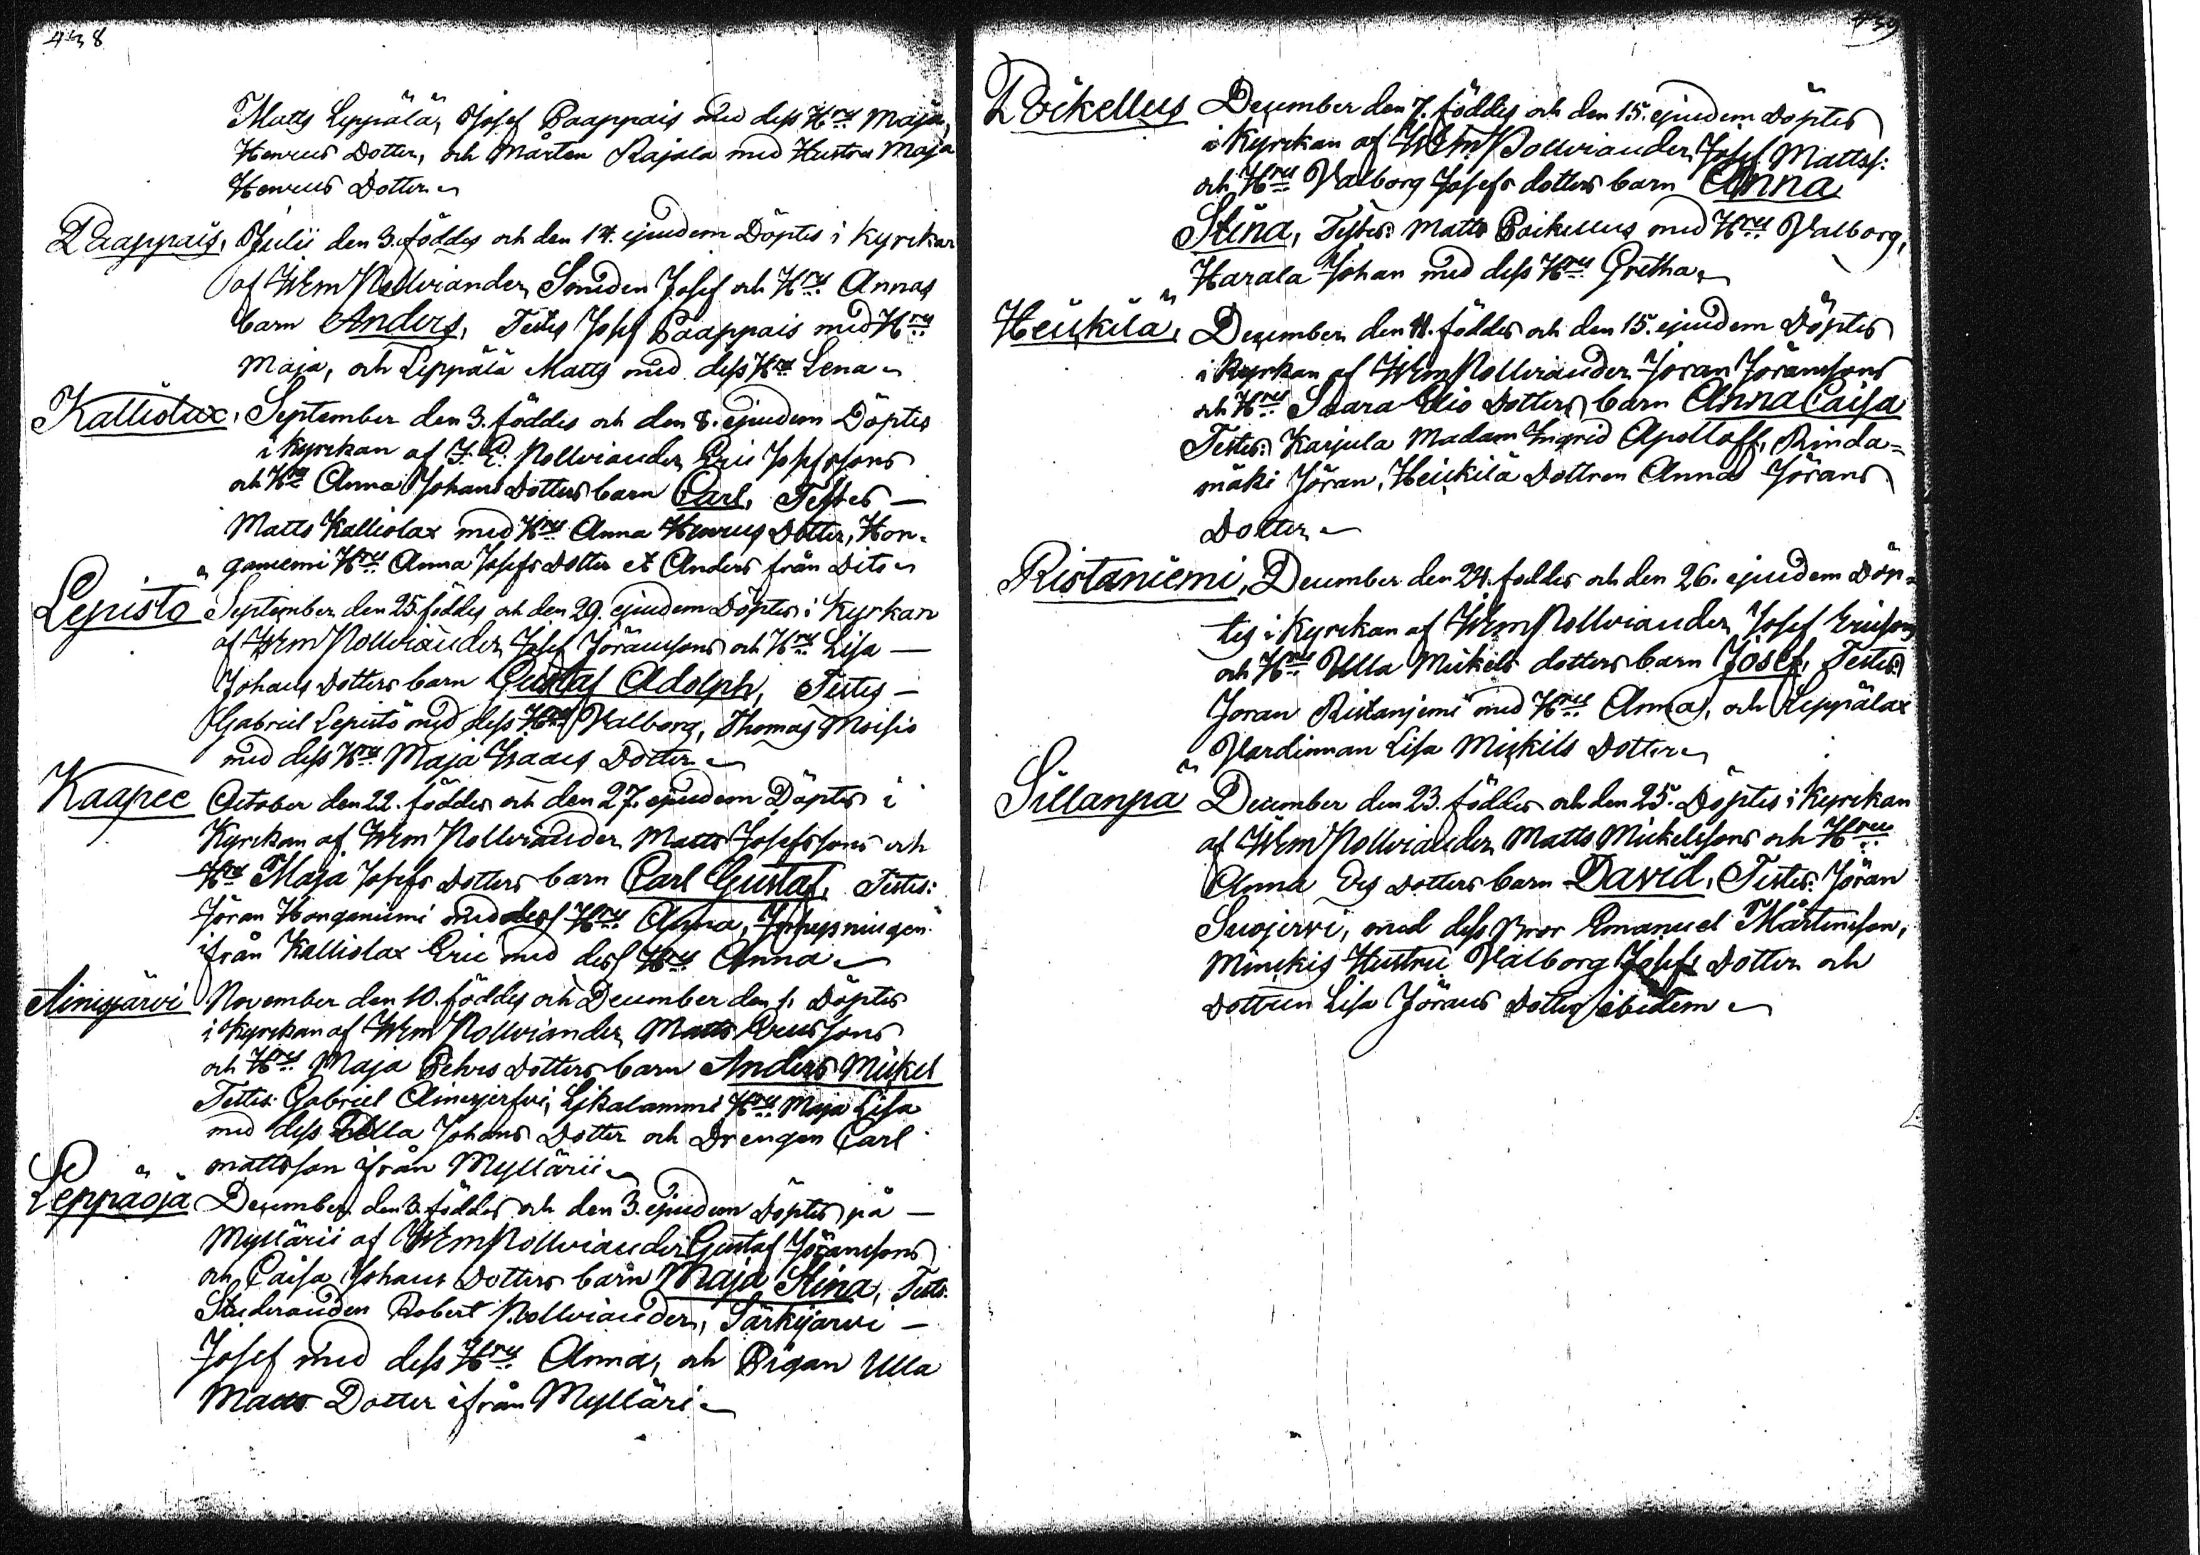 438
Matts Leppälä, Josef Paappais med dess Hru Maja
Henrics Dotter, och Mårten Rajala med Hustru Maja
Henrics Dotter
Paappais, Julii den 3. föddes och den 14. ejusdem Döptes i Kyrckan
af Wem Nollviander, Smeden Josef och Hru Annas
barn Anders, Testes Josef Paappais med Hru
Maja, och Leppälä Matts med dess Hru Lena
Kalliolax, September den 3. föddes och den 8. ejusdem Döptes
i Kyrckan af J. E. Nollviander Eric Josefssons
och Hru Anna Johans Dotters barn Carl, Testes —
Matts Kalliolax med Hru Anna Henrics Dotter, Hon-
ganiemi Hru Anna Josefs Dotter et Anders från Dito
Lepistö September den 25. föddes och den 29. ejusdem Döptes i Kyrkan
af Wem Nollviander, Josef Jöranssons och Hru Lisa —
Johans Dotters barn Gustaf Adolph, Testes —
Gabriel Lepistö med dess Hru Valborg, Thomas Moisio
med dess Hru Maja Isaacs Dotter
Kaapee October den 22. föddes och den 27. ejusdem Döptes i
Kyrckan af Wem Nollviander Matts Josefssons och
Hru Maja Josefs Dotters barn Carl Gustaf, Testes:
Jöran Honganiemi med dess Hru Anna,
ifrån Kalliolax Eric med dess Hru Anna
Ainesjärvi November den 10. föddes och December den 1. Döptes
i Kyrckan af Wem Nollviander, Matts Ericssons
och Hru Maja Pehrs Dotters barn Anders Mickel
Testes: Gabriel Ainesjerfvi, Hru Maja Lisa
med dess Ulla Johans Dotter och Drengen Carl
mattsson ifrån Myllärii
Leppäoja December den 3. föddes och den 3. ejusdem Döptes på —
Myllärii af Wem Nollviander Gustaf Jöranssons
och Caisa Johans Dotters barn Maja Stina, Testes.
Studeranden Robert Nollviander, Särkijärvi —
Josef med dess Hru Anna, och Pigan Ulla
Matts Dotter ifrån Mylläri
439
Poikellus December den 7. föddes och den 15. ejusdem Döptes
i Kyrckan af Wem Nollviander, Josef Mattss:
och Hru Valborg Josefs dotters barn Anna
Stina, Testes: Matts Poikellus med Hru Valborg,
Harala Johan med dess Hru Gretha,
Heickilä, December den 11. föddes och den 15. ejusdem Döptes
i Kyrckan af Wem Nollviander Jöran Jöranssons
och Hru Saara Elio Dotters barn Anna Caisa
Testes: Karjula Madam Ingrid Apolloff, Rinda=
mäki Jöran, Heickilä Dottren Anna Jörans
Dotter
Ristaniemi, December den 24. föddes och den 26. ejusdem Döp=
tes i Kyrckan af Wem Nollviander, Josef Ericssons
och Hru Ulla Mickels dotters barn Josef, Testes:
Joran Ristanjemi med Hru Anna, och Leppälax
Vardinnan Lisa Mickils Dotter
Sillanpä December den 23. föddes och den 25. Döptes i Kyrckan
af Wem Nollviander Matts Mickelssons och Hru
Anna Dotters barn David, Testes: Jöran
Suojervi, med dess Bror Emanuel Mårtensson,
Minckis Hustru Valborg Josefs Dotter och
Dottren Lisa Jörans Dotter ibidem